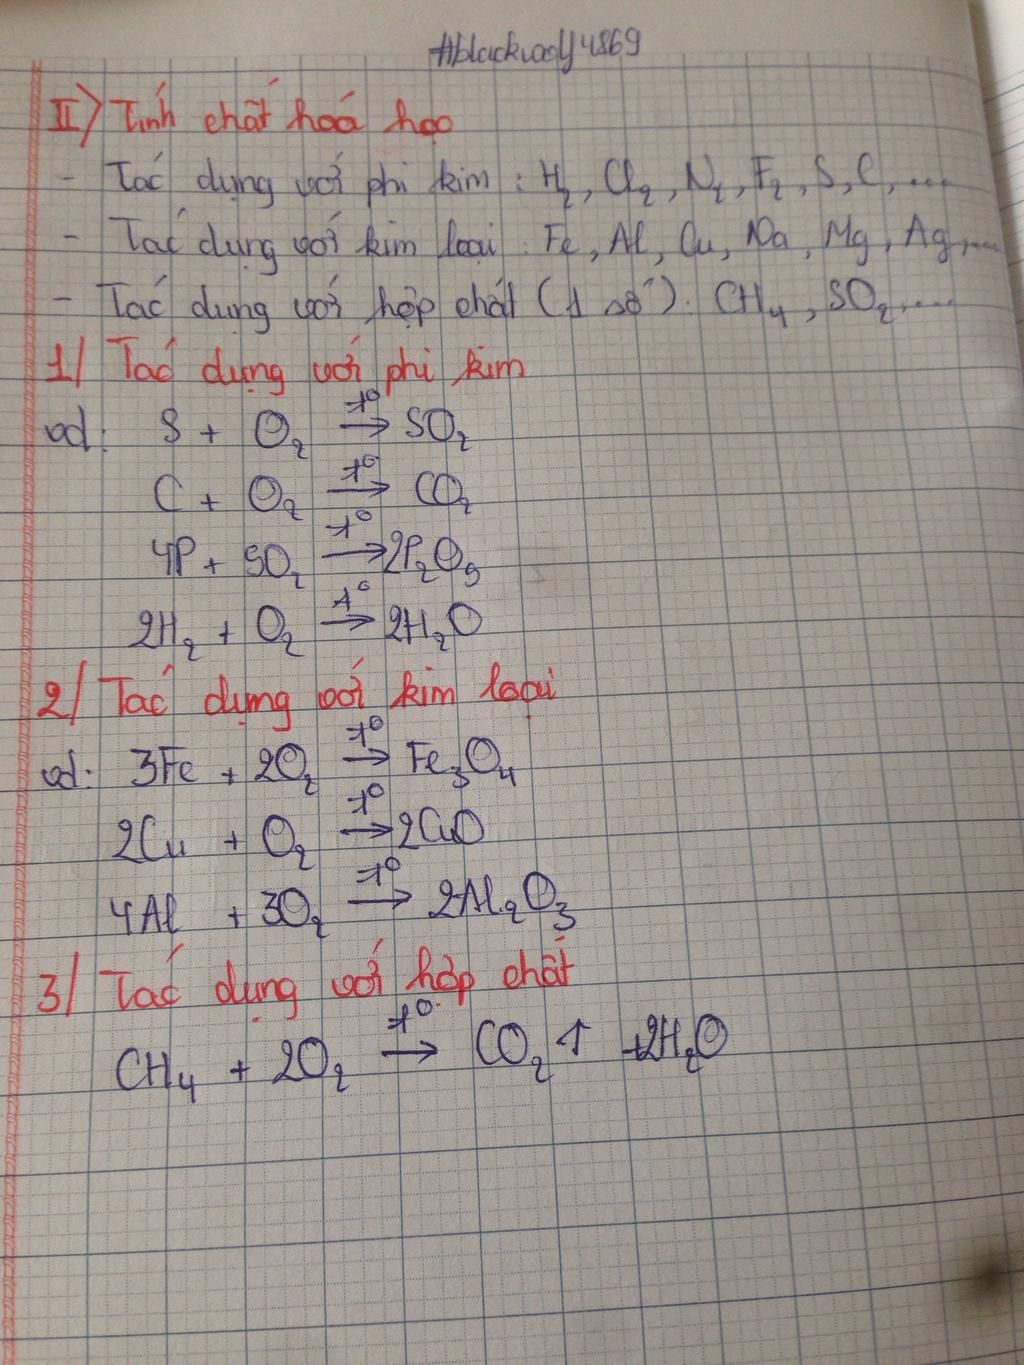 #blackwolf4869
II) Tính chất hoá học
- Tác dụng với phi kim : H₂, Cl₂, N₂, F₂, S, C, ....
- Tác dụng với kim loại : Fe, Al, Cu, Na, Mg, Ag,...
- Tác dụng với hợp chất (1 số) : CH₄, SO₂,....
1/ Tác dụng với phi kim
vd: S + O₂ →(t°) SO₂
C + O₂ →(t°) CO₂
4P + 5O₂ →(t°) 2P₂O₅
2H₂ + O₂ →(t°) 2H₂O
2/ Tác dụng với kim loại
vd: 3Fe + 2O₂ →(t°) Fe₃O₄
2Cu + O₂ →(t°) 2CuO
4Al + 3O₂ →(t°) 2Al₂O₃
3/ Tác dụng với hợp chất
CH₄ + 2O₂ →(t°) CO₂ ↑ + 2H₂O